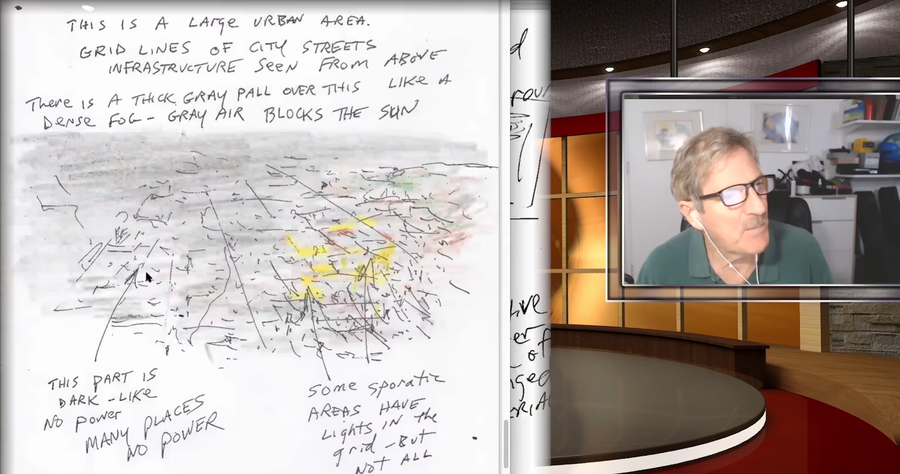 THIS IS A LARGE URBAN AREA.
GRID LINES OF CITY STREETS
INFRASTRUCTURE SEEN FROM ABOVE
THERE IS A THICK GRAY PALL OVER THIS LIKE A
DENSE FOG - GRAY AIR BLOCKS THE SUN
THIS PART IS
DARK - LIKE
NO POWER
MANY PLACES
NO POWER
SOME SPORATIC
AREAS HAVE
LIGHTS IN THE
GRID - BUT
NOT ALL